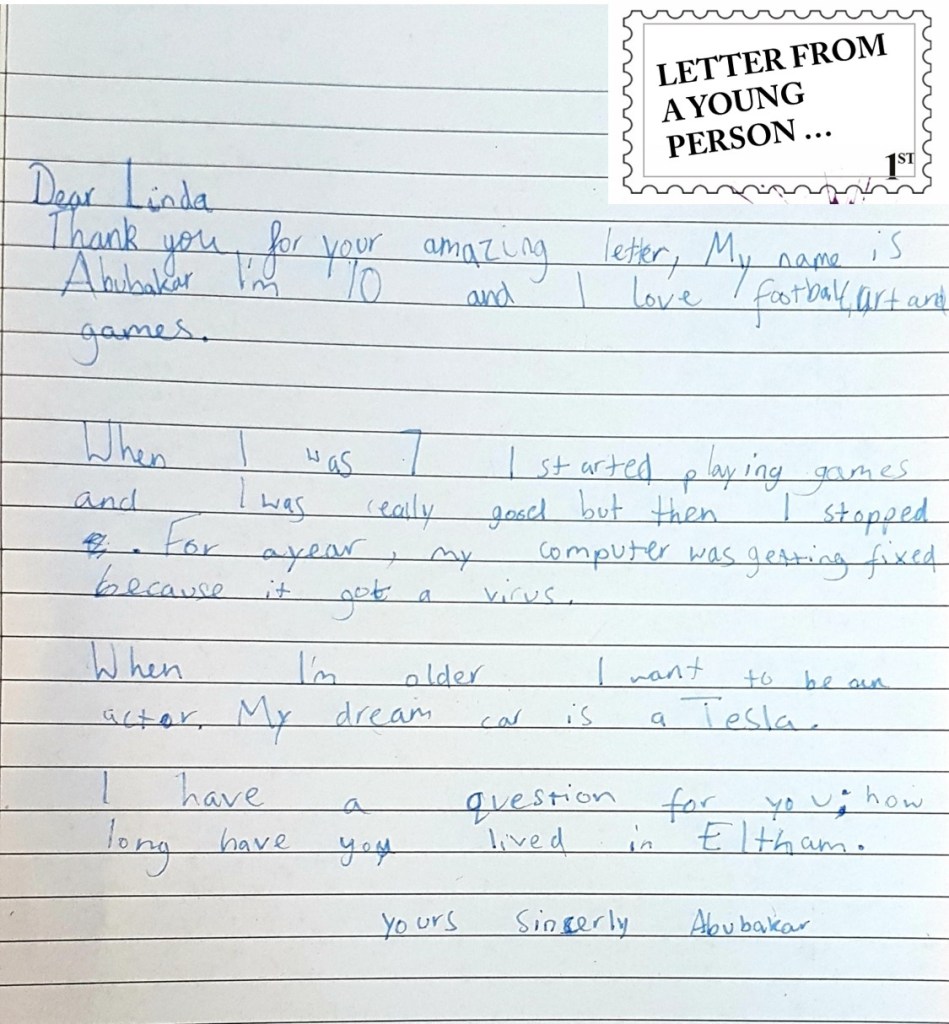 LETTER FROM
A YOUNG
PERSON ...
1ST
Dear Linda
Thank you for your amazing letter, My name is
Abubakar I'm 10 and I love football, art and
games.
When I was 7 I started playing games
and I was really good but then I stopped
. For a year, my computer was getting fixed
because it got a virus.
When I'm older I want to be an
actor. My dream car is a Tesla.
I have a question for you; how
long have you lived in Eltham.
yours sincerly Abubakar